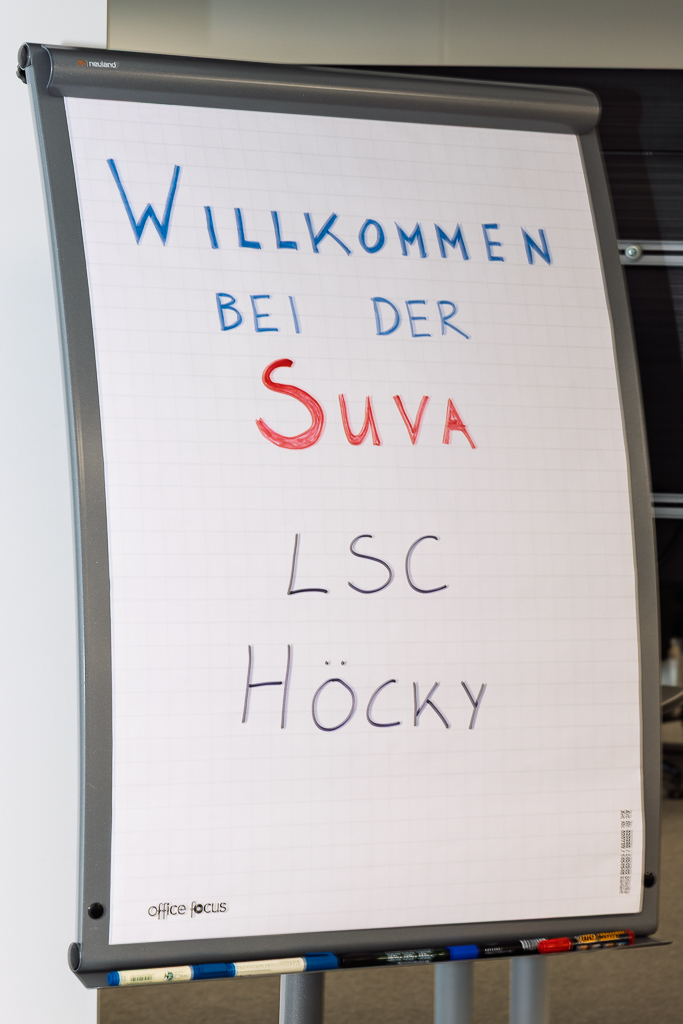 neuland
WILLKOMMEN
BEI DER
SUVA
LSC
HÖCKY
office focus